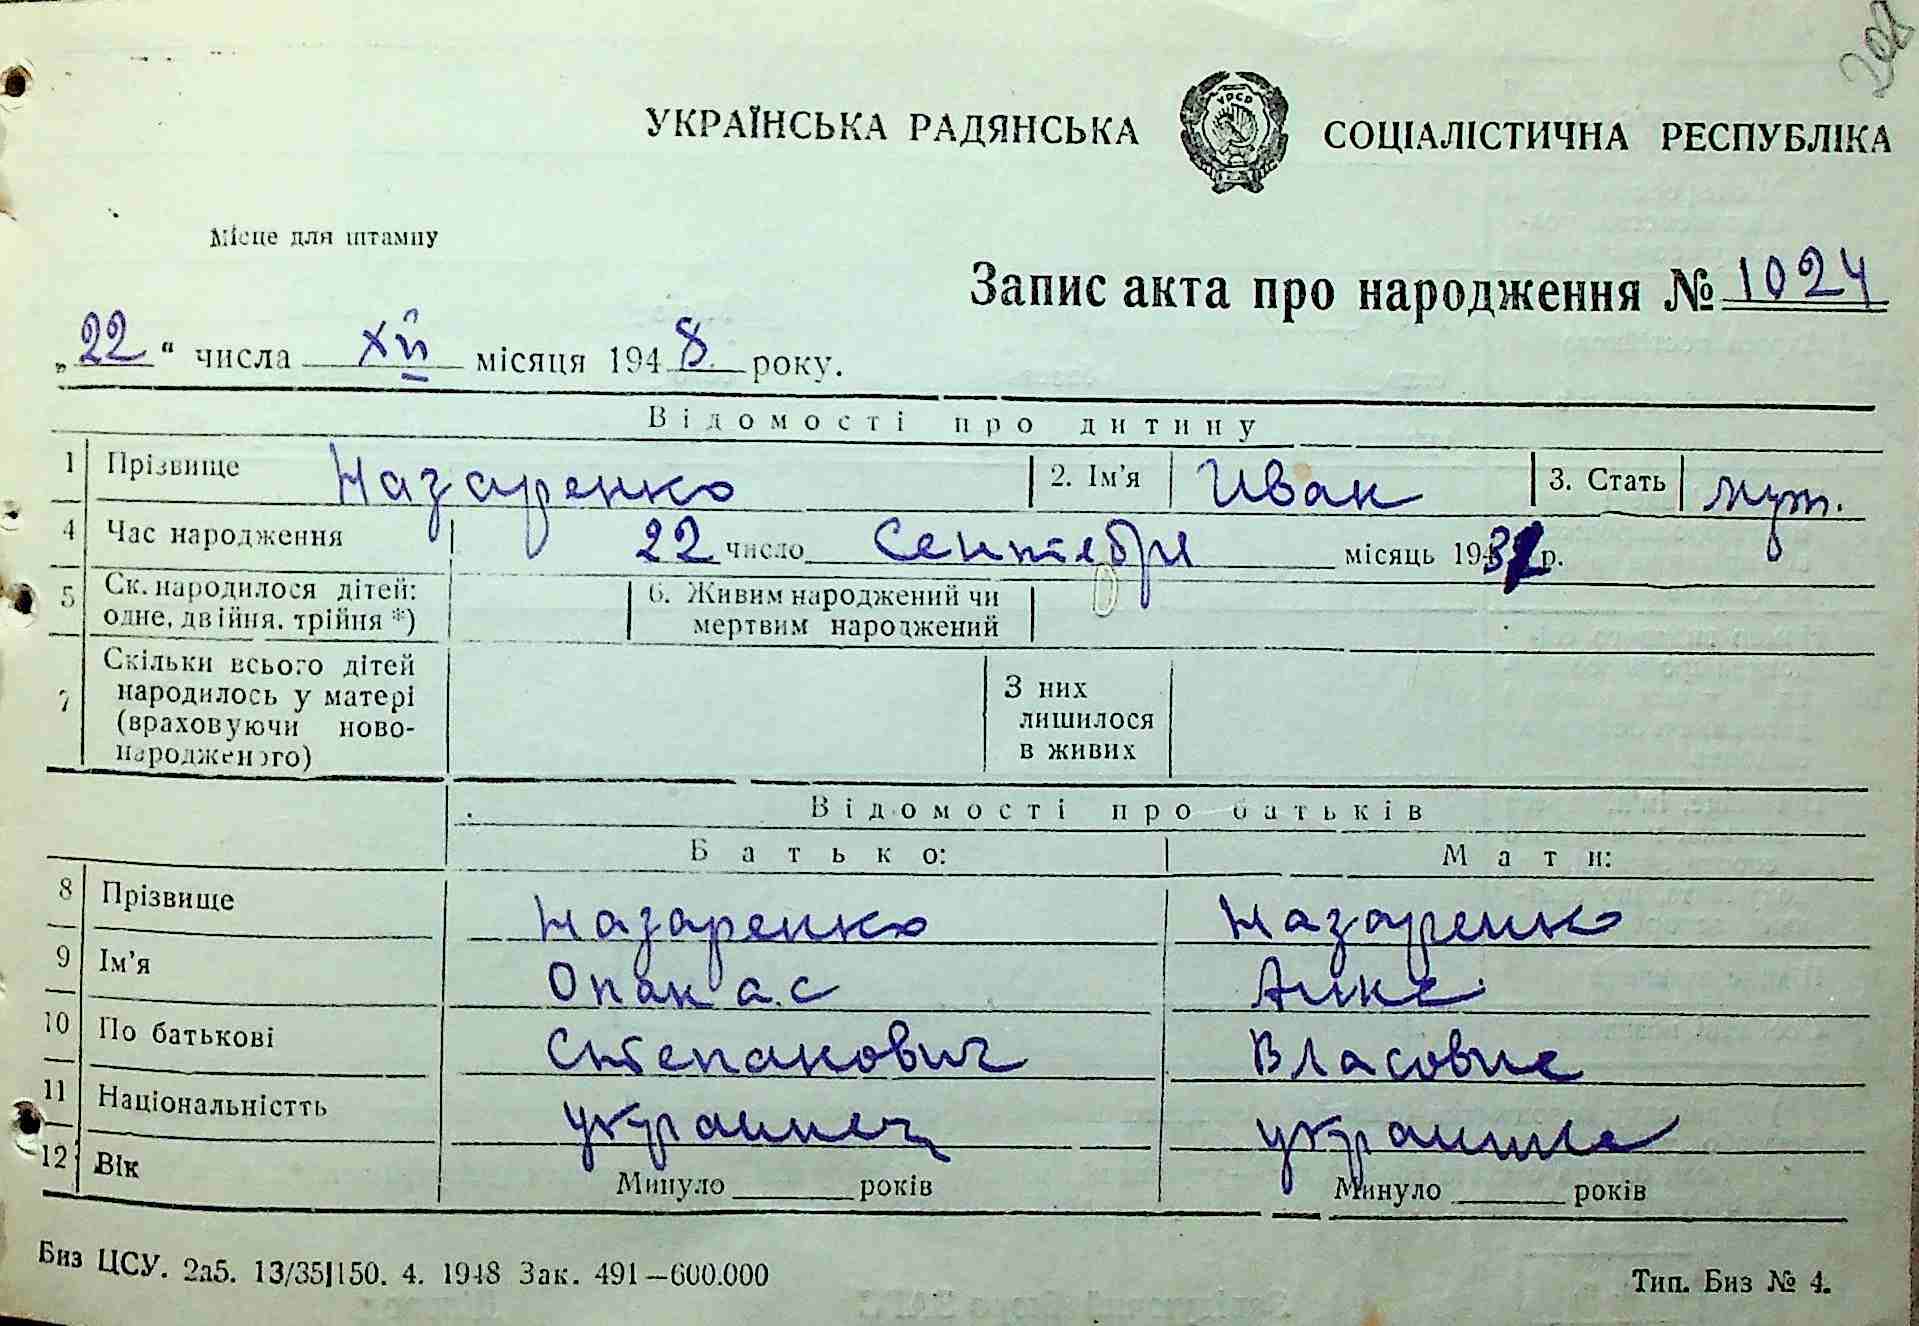 202
УКРАЇНСЬКА РАДЯНСЬКА СОЦІАЛІСТИЧНА РЕСПУБЛІКА
УРСР
Місце для штампу
Запис акта про народження № 1024
„22“ числа XII місяця 1948 року.
Відомості про дитину
1 Прізвище Назаренко 2. Ім'я Иван 3. Стать муж.
4 Час народження 22 число Сентября місяць 193 р.
5 Ск. народилося дітей: 6. Живим народжений чи
одне, двійня, трійня *) мертвим народжений
7 Скільки всього дітей З них
народилось у матері лишилося
(враховуючи ново- в живих
народженого)
Відомості про батьків
Батько: Мати:
8 Прізвище Назаренко Назаренко
9 Ім'я Опанас Анна
10 По батькові Степанович Власовна
11 Національністть украинец украинка
12 Вік Минуло ______ років Минуло ______ років
Биз ЦСУ. 2а5. 13/35|150. 4. 1948 Зак. 491—600.000 Тип. Биз № 4.